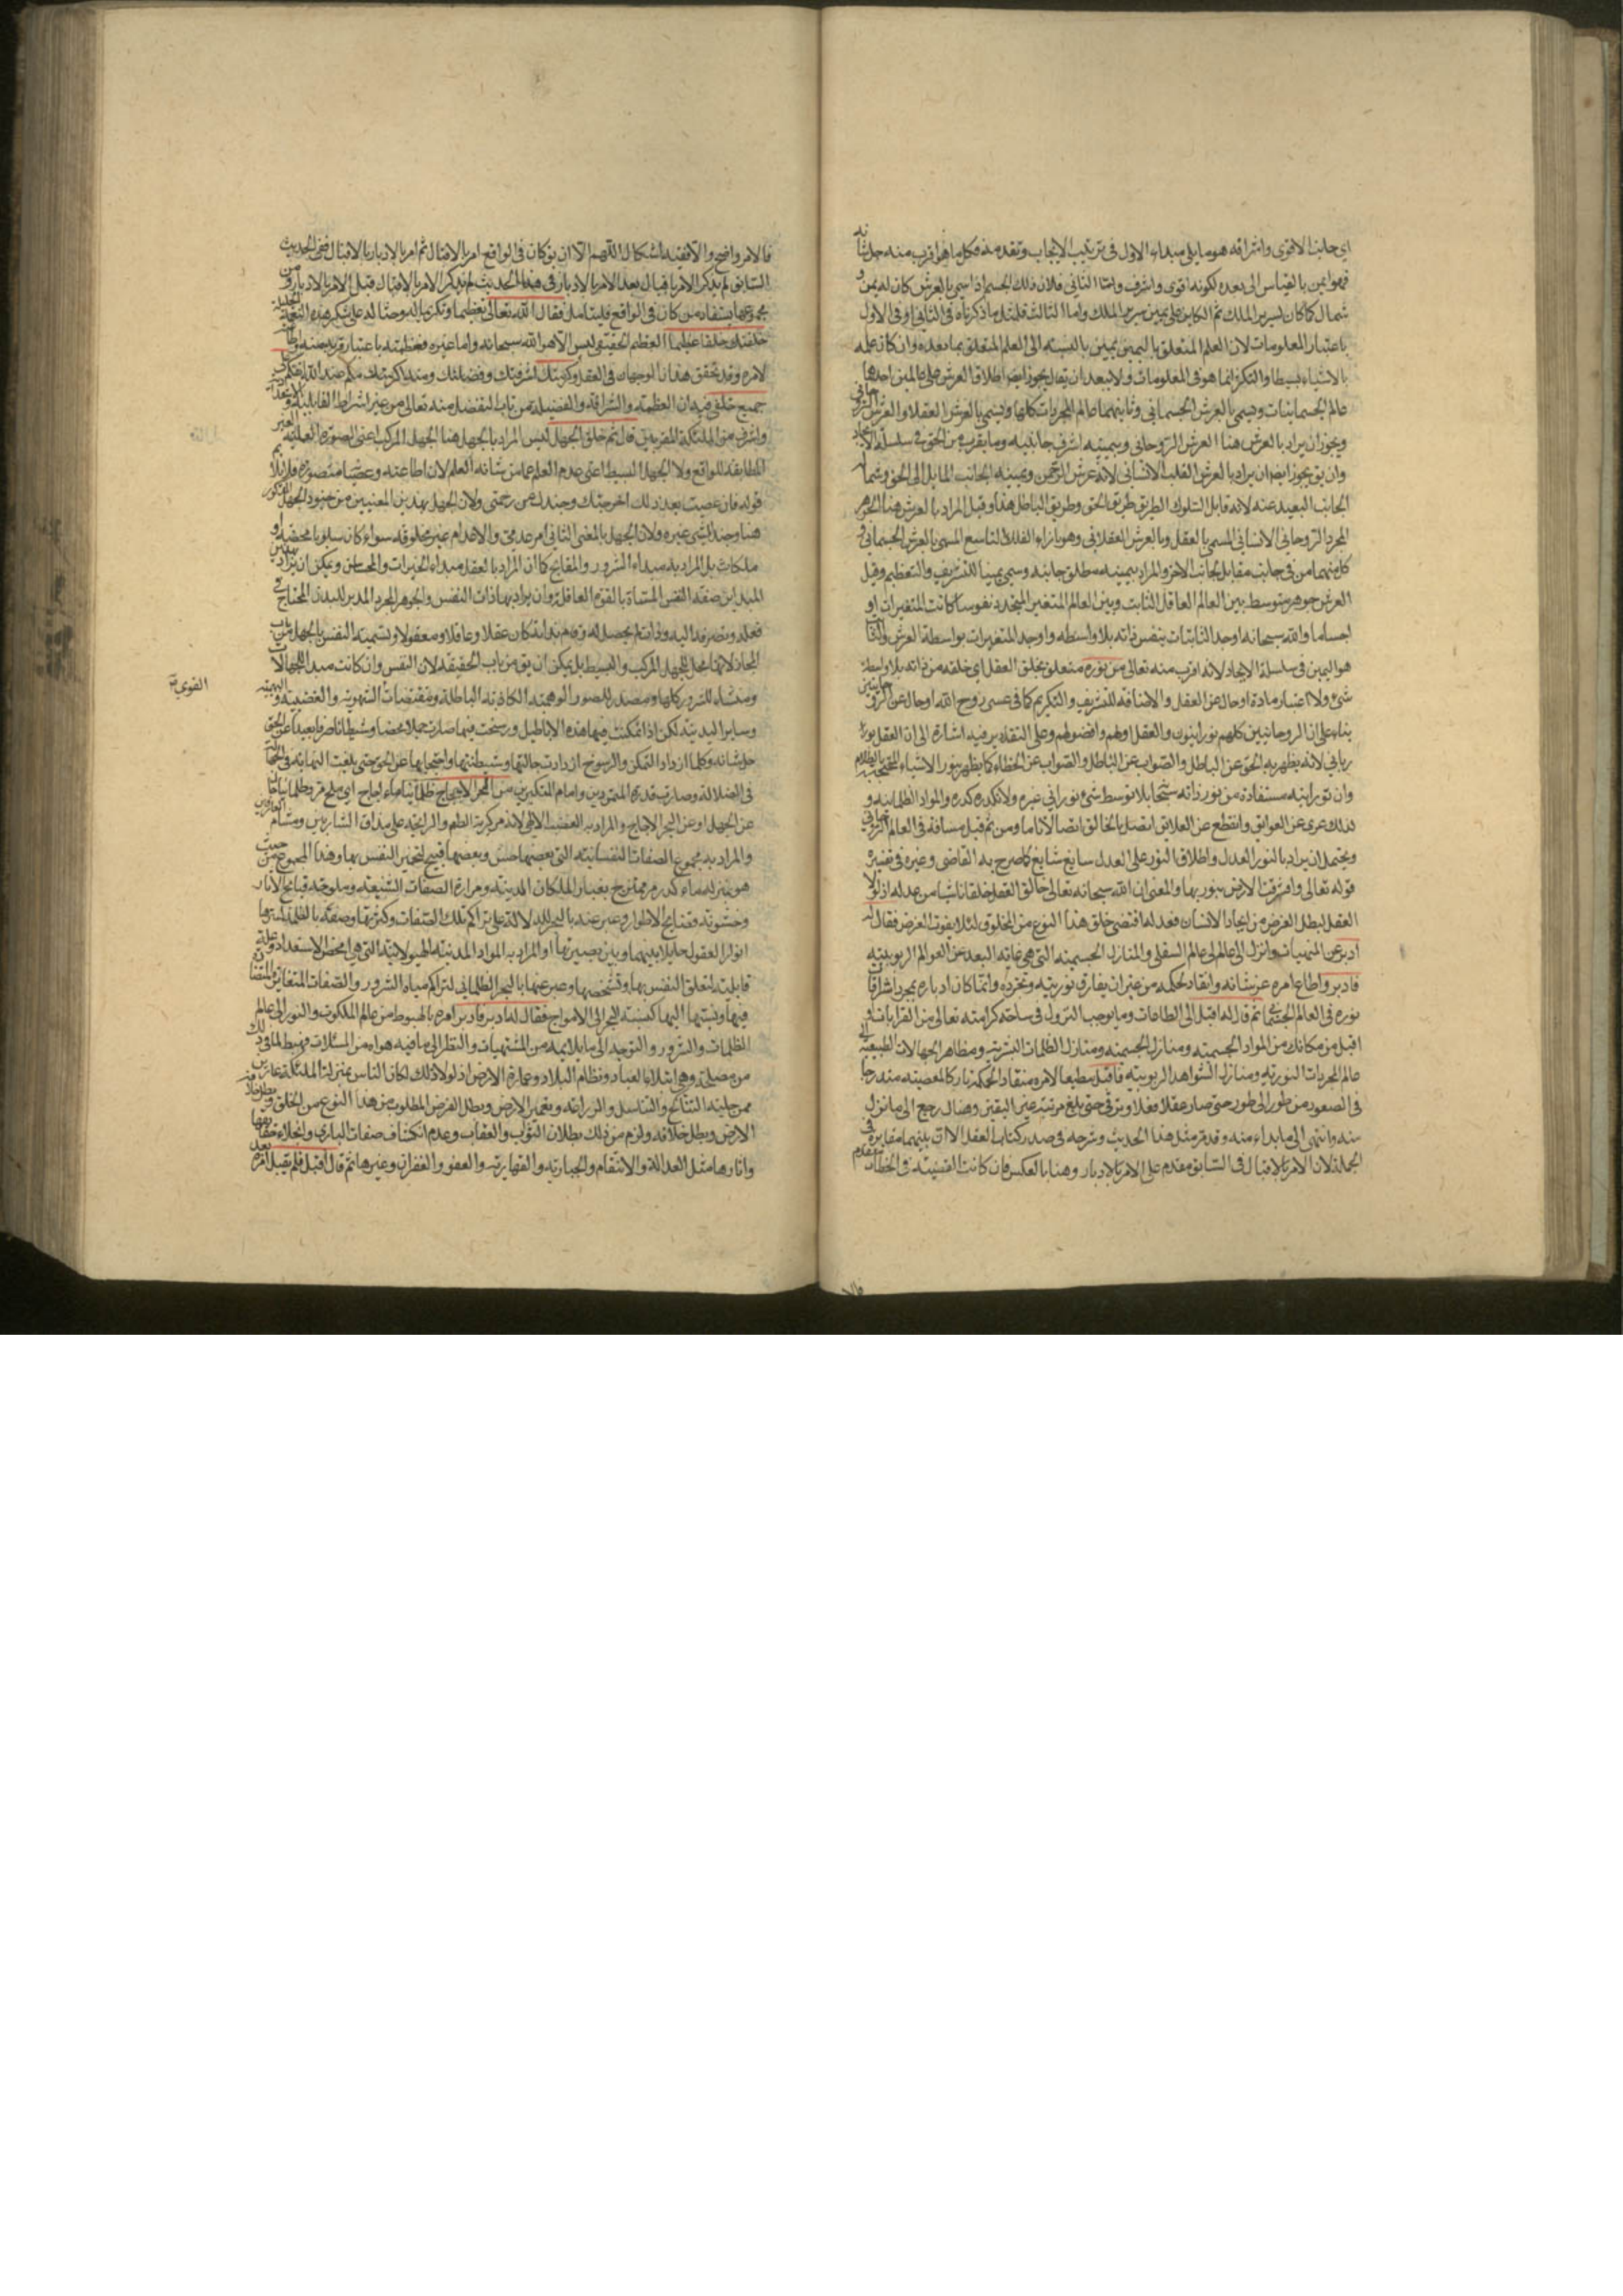 اي جانبه الاقوى واشرافه هو ما يلي مبداءه الاول في ترتيب الايجاب وتقدمه فكل ما هو اقرب منه جل شانه
فهو ايمن بالقياس الى بعده لكونه اقوى واشرف واما الثاني فلان ذلك الجسم اذا سمي بالعرش كان له يمين و
شمال كما كان لسرير الملك ثم الكاين على يمين سرير الملك واما الثالث فلمثل ما ذكرناه في الثاني او في الاول
باعتبار المعلومات لان العلم المتعلق باليمين يمين بالنسبة الى العلم المتعلق بما بعده وان كان علمه
بالاشياء بسيطا والتكثر انما هو في المعلومات ولا يبعد ان يقال يجوز ايضا اطلاق العرش على عالمين احدهما
عالم الجسمانيات ويسمى بالعرش الجسماني وثانيهما عالم المجردات كلها ويسمى بالعرش العقلاني والعرش الروحاني
ويجوز ان يراد بالعرش هنا العرش الروحاني وبيمينه اشرف جانبيه وما يقرب من الحق في سلسلة الايجاد
وان يق يجوز ايضا ان يراد بالعرش القلب الانساني لانه عرش الرحمن ويمينه الجانب المايل الى الحق وشماله
الجانب البعيد عنه لانه قابل لسلوك الطريق طريق الحق وطريق الباطل هذا وقيل المراد بالعرش هنا الجوهر
المجرد الروحاني الانساني المسمى بالعقل وبالعرش العقلاني وهو بازاء الفلك التاسع المسمى بالعرش الجسماني و
كل منهما من في جانب مقابل لجانب الاخر والمراد بيمينه مطلق جانبه وسمي يمينا للتشريف والتعظيم وقيل
العرش جوهر متوسط بين العالم العاقل الثابت وبين العالم المتغير المتجدد نفوسا كانت المتغيرات او
اجساما والله سبحانه اوجد الثابتات بنفس ذاته بلا واسطه واوجد المتغيرات بواسطة العرش والثابت
هو اليمين في سلسلة الايجاد لانه اقرب منه تعالى من نوره متعلق بخلق العقل اي خلقه من ذاته بلا واسطة
شئ ولا اعتبار مادة او حال عن العقل والاضافة للتشريف والتكريم كما في عيسى روح الله او حال عن الروحانيين
بناء على ان الروحانيين كلهم نورانيون والعقل اولهم وافضلهم وعلى التقادير فيه اشارة الى ان العقل نور
رباني لانه يظهر به الحق عن الباطل والصواب عن الخطاء كما يظهر بنور الاشياء المحتجبة بالظلام
وان نورانيته مستفادة من نور ذاته سبحانه بلا توسط شئ نوراني غيره ولا تكدره كدرة المواد الظلمانية و
لذلك عرى عن العوائق وانقطع عن العلايق اتصل بالخالق اتصالا تاما ومن ثم قيل مسافة في العالم الروحاني
ويحتمل ان يراد بالنور العدل واطلاق النور على العدل سايغ شايع كما صرح به القاضي وغيره في تفسير
قوله تعالى واشرقت الارض بنور ربها والمعنى ان الله سبحانه تعالى خالق العقل خلقا ناشيا من عدله اذ لولا
العقل لبطل الغرض من ايجاد الانسان فعدله اقتضى خلق هذا النوع من المخلوق لئلا يفوت الغرض فقال له
ادبر عن المنهيات وانزل الى عالم السفلي والمنازل الجسمية التي هي غاية البعد عن العوالم الربوبية
فادبر واطاع امره عز شانه وانقاد لحكمه من غير ان يفارق نوريته وتجرده وانما كان ادباره بمجرد اشراق
نوره في العالم الجسماني ثم قال له اقبل الى الطاعات وما يوجب النزول في ساحة كرامته تعالى من القرابات و
اقبل من مكانك من المواد الجسمية ومنازل الجسمية ومنازل الظلمات البشرية ومظاهر الجهالات الطبيعية الى
عالم المجردات النورية ومنازل الشواهد الربوبية فاقبل مطيعا لامره منقادا لحكمه تاركا لمعصيته متدرجا
في الصعود من طور الى طور حتى صار عقلا وترقى حتى بلغ مرتبة عين اليقين وهناك رجع الى ما نزل
منه وانتهى الى ما بداء منه وقد مر مثل هذا الحديث وشرحه في صدر كتاب العقل الا ان بينهما مغايرة في
الجملة لان الامر بالاقبال في السابق مقدم على الامر بالادبار وهنا بالعكس فان كانت القضية في الخطاب متقدم
فالامر واضح والا ففيه اشكال اللهم الا ان يق كان في الواقع امر بالاقبال ثم امر بالادبار بالاقبال ففي الحديث
السابق لم يذكر الامر باقبال بعد الامر بالادبار وفي هذا الحديث لم يذكر الامر بالاقبال قبل الامر بالادبار ومن
مجموعها يستفاد من كان في الواقع فليتامل فقال الله تعالى تعظيما وتكريما له وحثا له على شكر هذه النعمة الجليلة
خلقتك خلقا عظيما العظيم الحقيقي ليس الا هو الله سبحانه واما غيره فعظمته باعتبار قربه منه واطاعته
لامره وقد تحقق هذان الوجهان في العقل وكرمتك اي شرفتك وفضلتك ومنه ان اكرمكم عند الله اتقيكم على
جميع خلقي فيه ان العظمة والشرافة والفضيلة من باب التفضل منه تعالى من غير اشتراط القابلية والاستعداد
واشرف من الملئكة المقربين قال ثم خلق الجهل ليس المراد بالجهل هنا الجهل المركب اعني الصورة العلمية الغير
المطابقة للواقع ولا الجهل البسيط اعني عدم العلم عما من شانه العلم لان اطاعته وعصيانه متصورة فلا يلايم
قوله فان عصيت بعد ذلك اخرجتك وجندك من رحمتي ولان الجهل بهذين المعنيين من جنود الجهل المذكور
هنا وجند الشي غيره ولان الجهل بالمعنى الثاني امر عدمي والاعدام غير مخلوقة سواء كان سلوبا محضة او
ملكات بل المراد به مبداء الشرور والمقابح كما ان المراد بالعقل مبداء الخيرات والمحاسن ويمكن ان يراد بهذين
المبداين صفة النفس المسماة بالقوة العاقلة وان يراد بهما ذات النفس والجوهر المجرد المدبر للبدن المحتاج في
ومنشاء للشرور كلها ومصدر للصور الوهمية الكاذبة الباطلة ومقتضيات الشهوية والغضبية والبهيمية
وساير الدينية لكن اذا تمكنت فيها هذه الاباطيل ورسخت فيها صارت جهلا محضا وشيطانا صرفا بعيدا عن الحق
جل شانه وكلما ازداد التمكن والرسوخ ازدادت جهالتها وشيطنتها واحتجابها عن الحق حتى بلغت النهاية في الجهالة
في الضلالة وصارت قدوة المتمردين وامام المتكبرين من البحر الاجاج ظلمانيا ماء اجاج اي ملح مر وظلمانيا حال
عن الجهل او عن البحر الاجاج والمراد به الغضب الالهي لانه مر كريه الطعم والرايحة على مذاق الشاربين ومشام العارفين
والمراد به مجموع الصفات النفسانية التي بعضها حسن وبعضها قبيح لتحير النفس بها وهذا المجموع من حيث
هو بمنزلة ماء كدر مر ممتزج بغبار الملكات الدينية ومرارة الصفات الشنيعة وملوحة قبايح الاثار
وخشونة وقبايح الاطوار وعبر عنه بالبحر للدلالة على تراكم تلك الصفات وكثرتها وصفته بالظلمة لسترها
انوار العقول حايلا بينها وبين بصيرتها او المراد به المواد المدنية الهيولانية التي هي محض الاستعداد وعلة
قابلية لتعلق النفس بها وتشخصها وعبر عنها بالبحر الظلماني لتراكم مياه الشرور والصفات المتغايرة المتضادة
فيها ونسبتها اليها كنسبة البحر الى الامواج فقال له ادبر فادبر امره بالهبوط من عالم الملكوت والنور الى عالم
الظلمات والشرور والتوجه الى ما يلايمه من المشتهيات والنظر الى ما فيه هواه من المستلذات فهبط لما في ذلك
من مصلحة وهي ابتلاء العباد ونظام البلاد وعمارة الارض اذ لولا ذلك لكان الناس بمنزلة الملئكة عارين
من حلية التناكح والتناسل والزراعة وتعمير الارض وبطل الغرض المطلوب من هذا النوع من الخلق وبطلت خلافة
الارض وبطل خلافه ولزم من ذلك بطلان الثواب والعقاب وعدم انكشاف صفات الباري وانجلاء حقايقها
واثارها مثل العدالة والانتقام والجبارية والقهارية والعفو والغفران وغيرها ثم قال اقبل فلم يقبل امره بعد
القوي